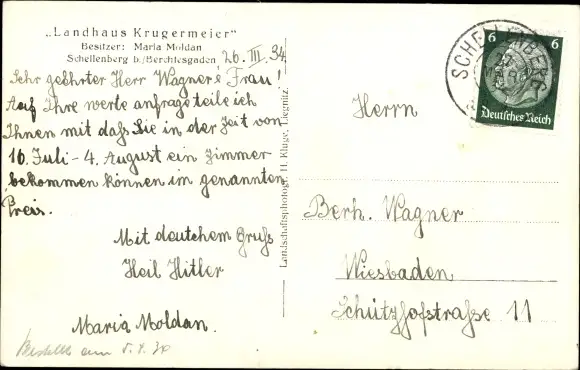 „Landhaus Krugermeier"
Besitzer: Maria Moldan
Schellenberg b./Berchtesgaden 26. III. 34
Sehr geehrter Herr Wagner & Frau!
Auf Ihre werte anfrage teile ich
Ihnen mit daſs Sie in der Zeit von
16. Juli - 4. August ein Zimmer
bekommen können im genannten
Preis.
Mit deutchem Gruſs
Heil Hitler
Maria Moldan.
Bestellt am 5.4.34
Landschaftsphotogr. H. Kluge, Liegnitz.
SCHELLENBERG
27
6 6
Deutsches Reich
Herrn
Berh. Wagner
Wiesbaden
Schützhofstraſse 11